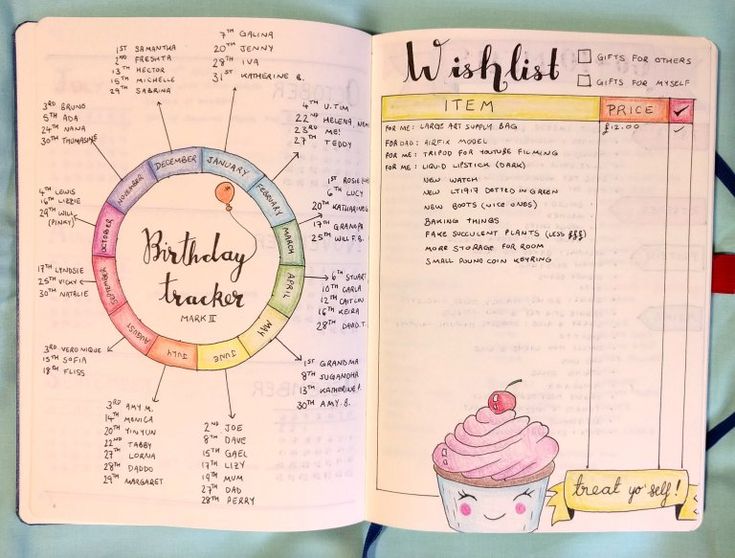 7TH GALINA
20TH JENNY
28TH IVA
31ST KATHERINE B.
1ST SAMANTHA
2ND FRESHTA
13TH HECTOR
15TH MICHELLE
29TH SABRINA
3RD BRUNO
5TH ADA
24TH NANA
30TH THOMASINE
4TH LEWIS
16TH LIZZIE
29TH WILL
(PINKY)
17TH LYNDSIE
25TH VICKY
30TH NATALIE
3RD VERONIQUE
15TH SOFIA
18TH FLISS
3RD AMY M.
14TH MONICA
20TH YINYUN
22ND TABBY
27TH LORNA
28TH DADDO
29TH MARGARET
2ND JOE
8TH DAVE
15TH GAEL
17TH LIZY
19TH MUM
27TH DAD
28TH PERRY
4TH U.TIM
22ND HELENA,
23RD ME!
27TH TEDDY
1ST ROSIE
6TH LUCY
20TH KATHARINE
17TH GRANDPA
25TH WILL F.B.
6TH STUART
10TH CARLA
12TH CAITLIN
16TH KEIRA
28TH DAVID.T.
1ST GRANDMA
8TH SUGANDHA
13TH KATHERINE P.
30TH AMY B.
JANUARY
FEBRUARY
MARCH
APRIL
MAY
JUNE
JULY
AUGUST
SEPTEMBER
OCTOBER
NOVEMBER
DECEMBER
Birthday
tracker
MARK II
Wishlist
GIFTS FOR OTHERS
GIFTS FOR MYSELF
ITEM PRICE ✓
FOR ME: LARGE ART SUPPLY BAG £12.00 ✓
FOR DAD: AIRFIX MODEL
FOR ME: TRIPOD FOR YOUTUBE FILMING
FOR ME: LIQUID LIPSTICK (DARK)
NEW WATCH
NEW LT1917 DOTTED IN GREEN
NEW BOOTS (NICE ONES)
BAKING THINGS
FAKE SUCCULENT PLANTS (LESS £££)
MORE STORAGE FOR ROOM
SMALL POUND COIN KEYRING
treat yo' self!